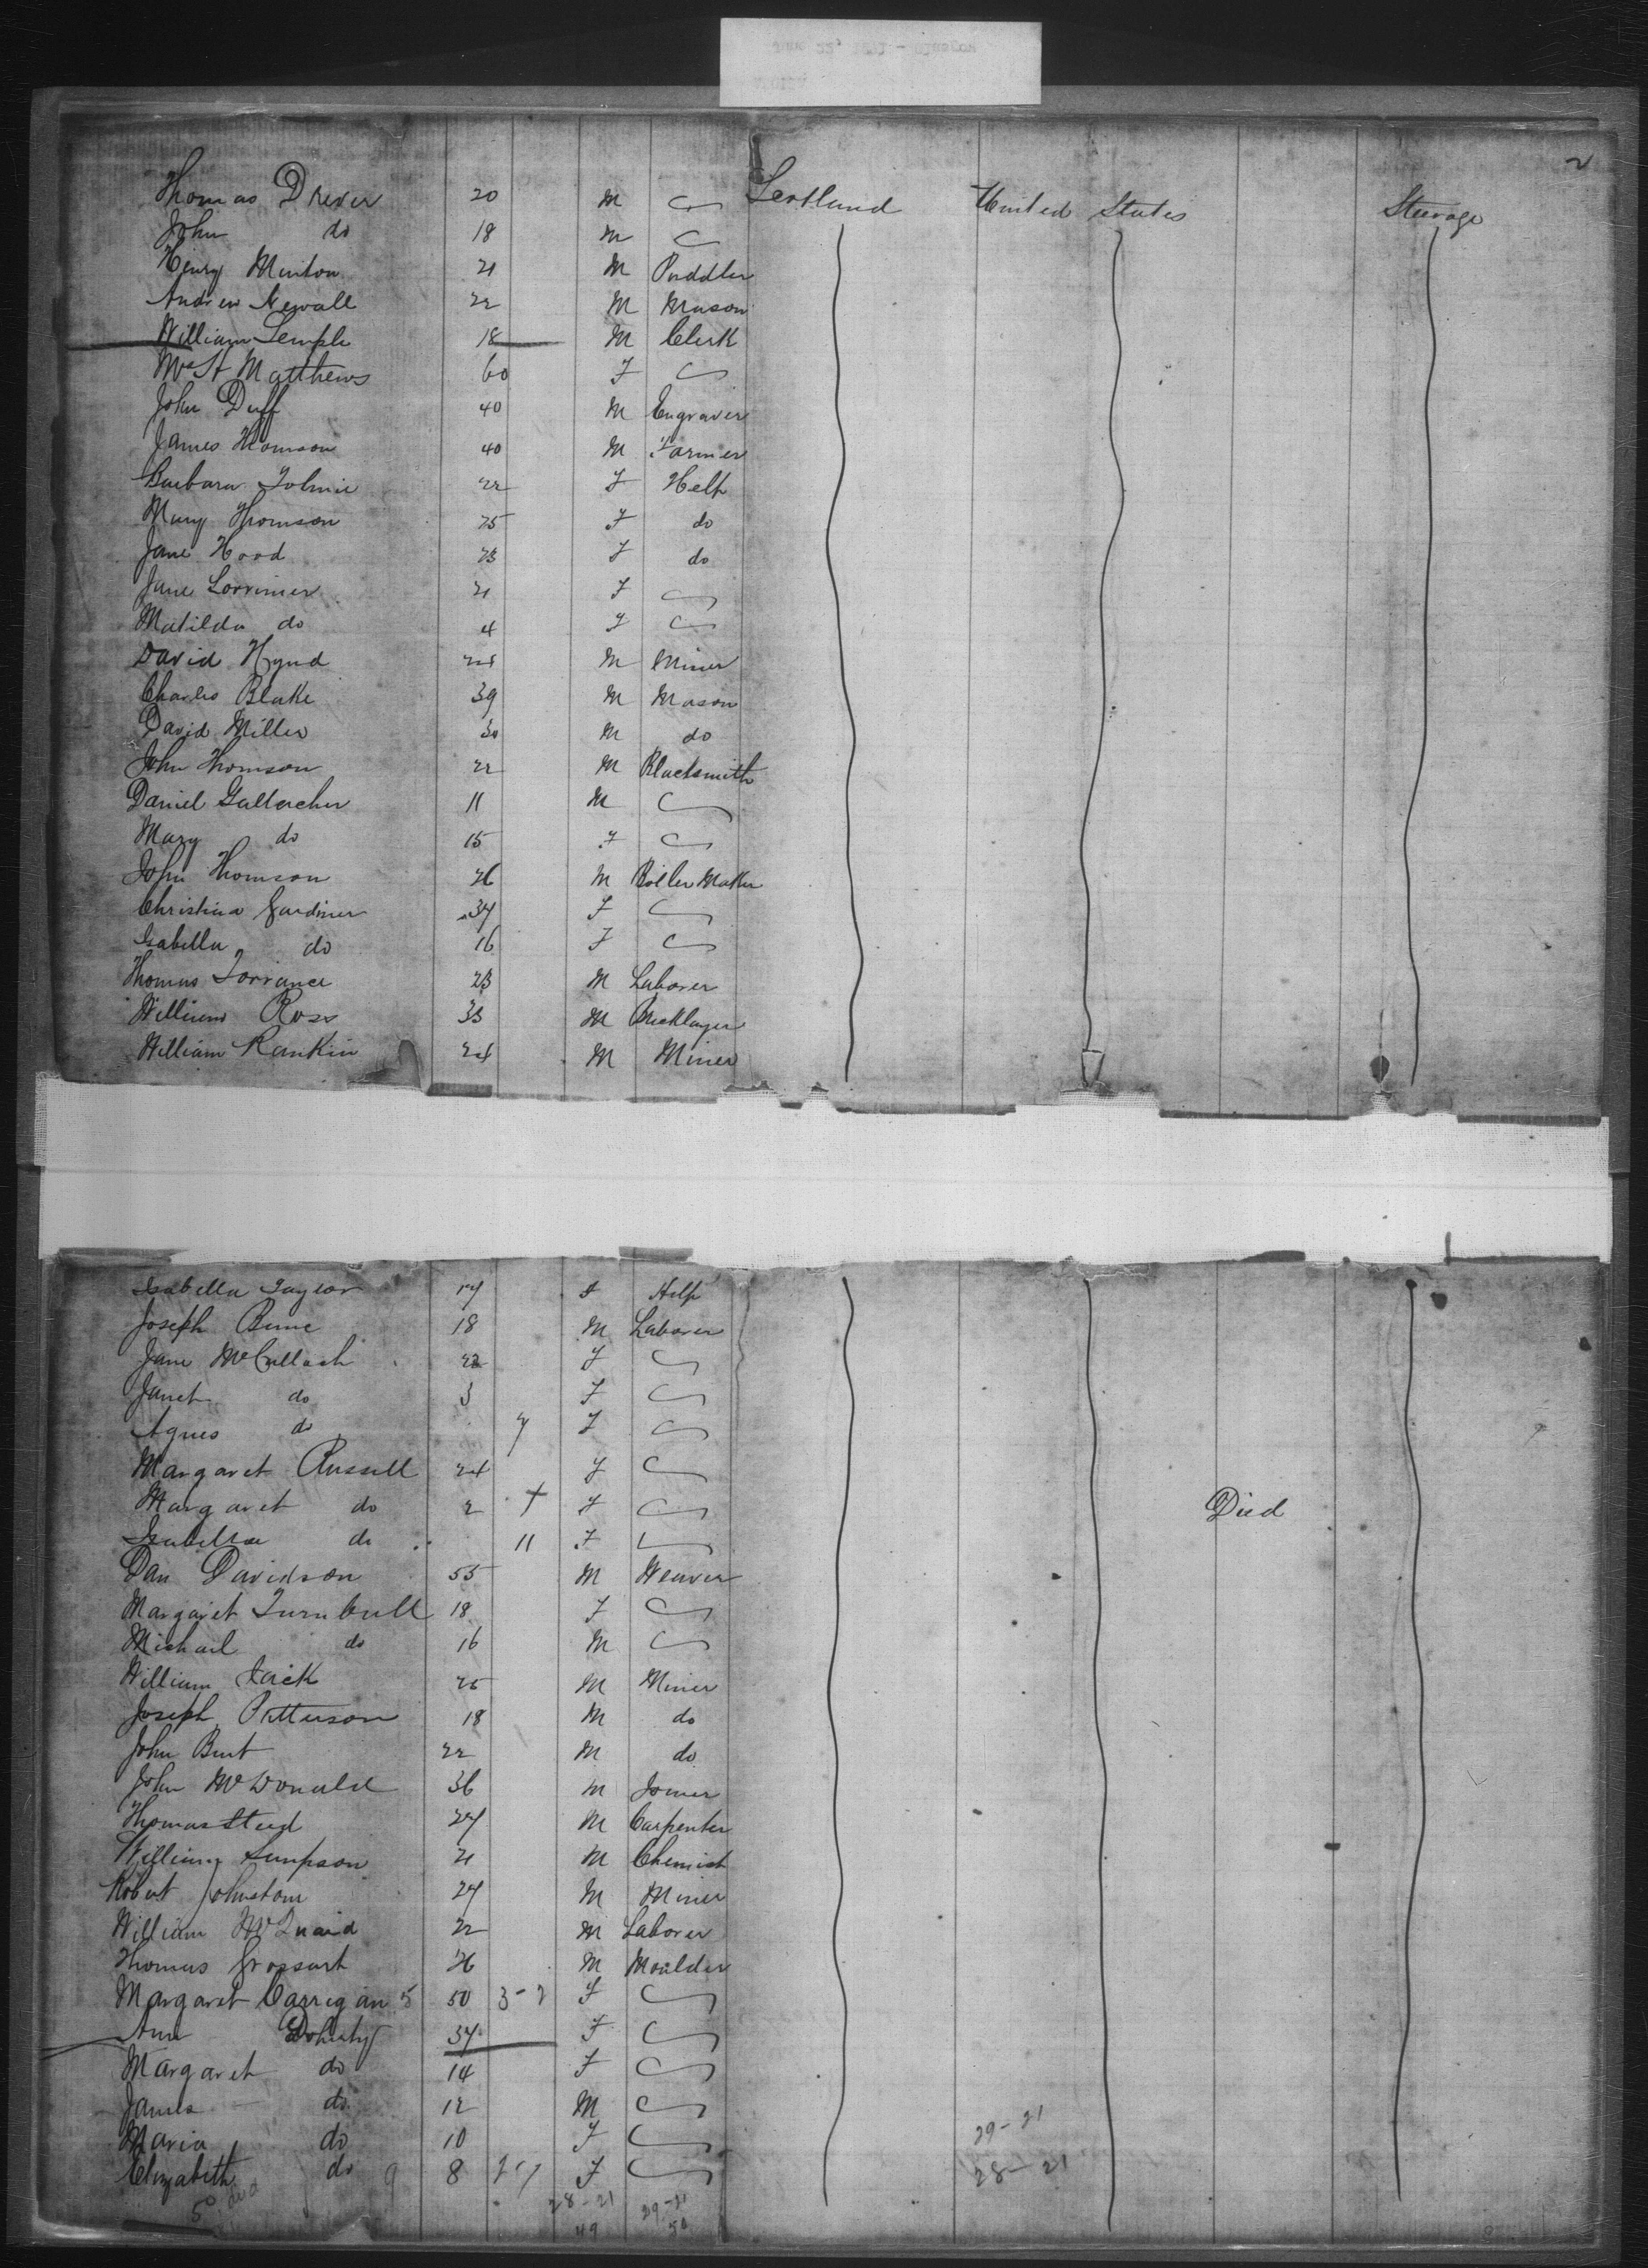 2
Thomas Drever 20 M Scotland United States Steerage
John do 18 M
Henry Minton 21 M Puddler
Andrew Newall 22 M Mason
William Semple 18 M Clerk
Matthews 60 F
John Duff 40 M Engraver
James Thomson 40 M Farmer
Barbara Tolmie 22 F Help
Mary Thomson 25 F do
Jane Hood 23 F do
Jane Lorrimer 21 F
Matilda do 4 F
David Hynd 24 M Miner
Charles Blake 39 M Mason
David Miller 30 M do
John Thomson 22 M Blacksmith
Daniel Gallacher 11 M
Mary do 15 F
John Thomson 26 M Boiler Maker
Christina Gardiner 37 F
Isabella do 16 F
Thomas Torrance 23 M Laborer
William Ross 33 M Bricklayer
William Rankin 24 M Miner
Isabella Taylor 17 F Help
Joseph 18 M Laborer
Jane McCulloch 22 F
Janet do 3 F
Agnes do 7 F
Margaret Russell 24 F
Margaret do 2 F Died
Isabella do 11 F
Dan Davidson 55 M Weaver
Margaret Turnbull 18 F
Michael do 16 M
William Jack 25 M Miner
Joseph Patterson 18 M do
John Burt 22 M do
John McDonald 36 M Joiner
Thomas Steed 27 M Carpenter
William Simpson 21 M Chemist
Robert Johnston 27 M Miner
William McQuaid 22 M Laborer
Thomas Grossart 26 M Moulder
Margaret Carrigan 50 F
Ann Doherty 37 F
Margaret do 14 F
James do 12 M
Maria do 10 F 29-21
Elizabeth do 8 F 28-21
28-21 29-21
49 50